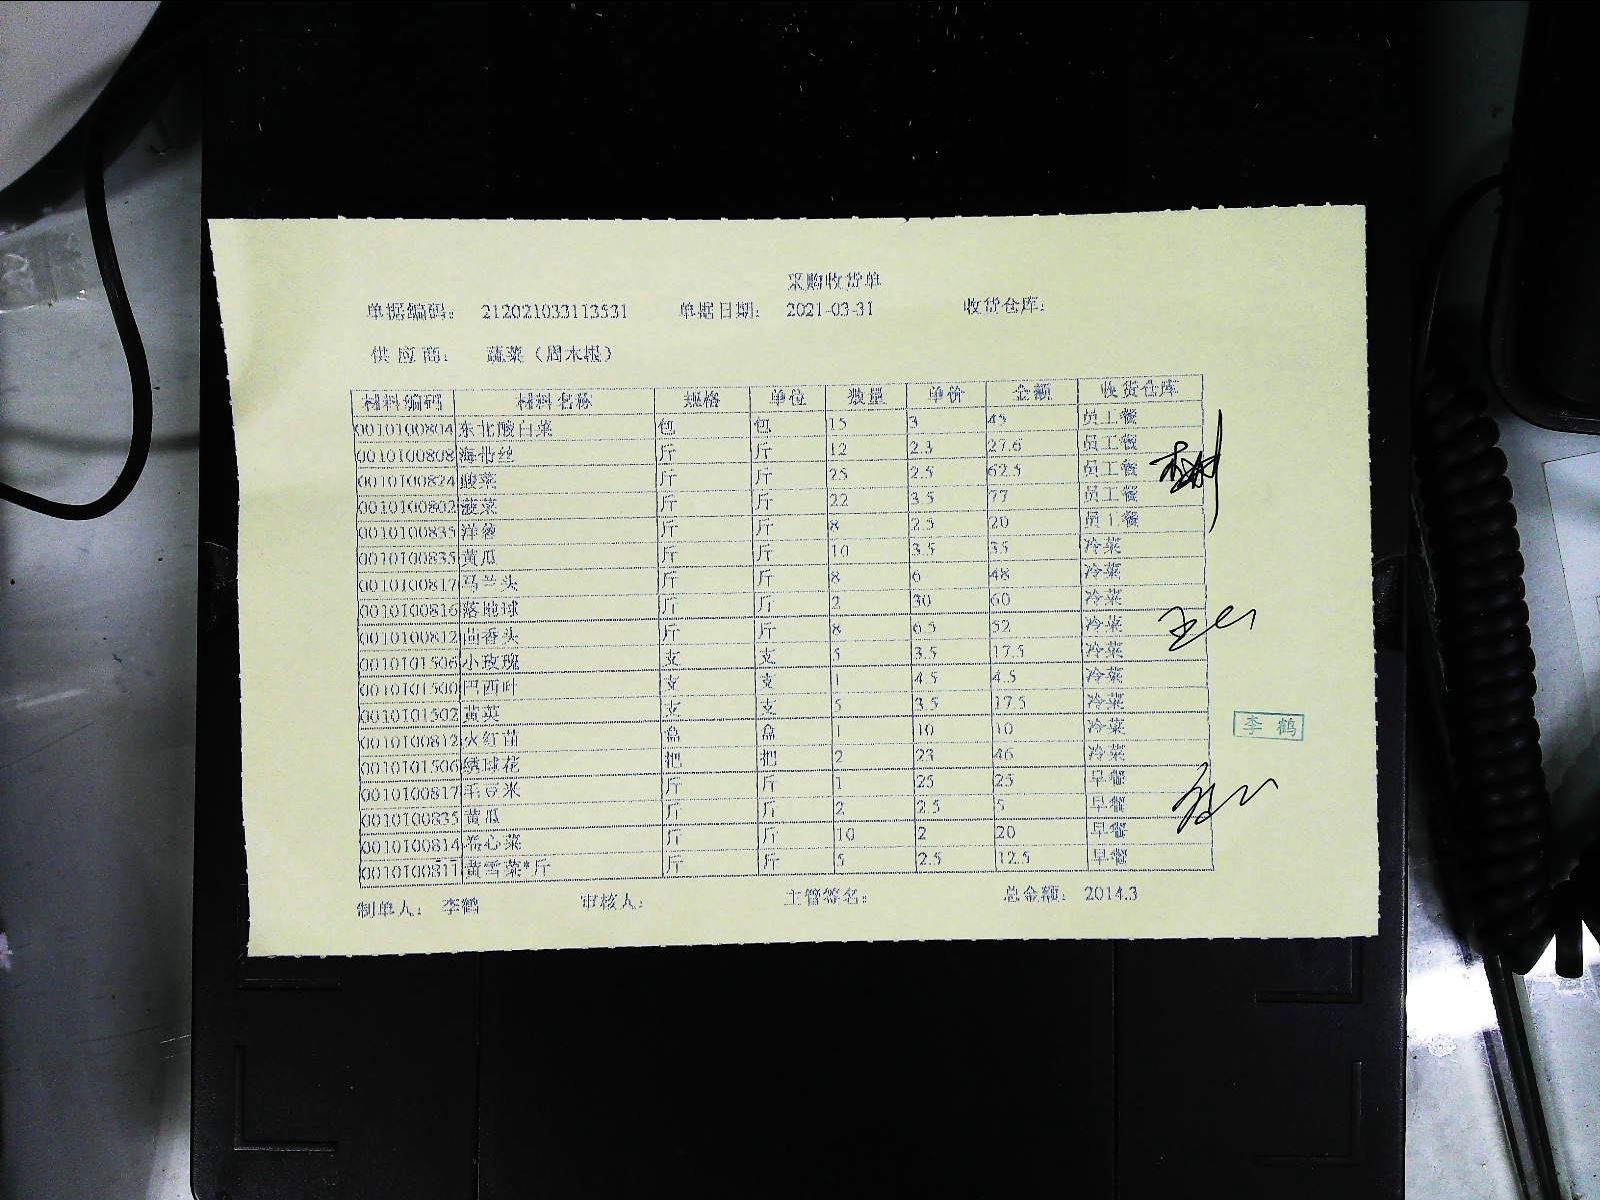 采购收货单
单据编码： 212021033113531 单据日期： 2021-03-31 收货仓库：
供应商： 蔬菜（周木根）
材料编码 材料名称 规格 单位 数量 单价 金额 收货仓库
0010100804 东北酸白菜 包 包 15 3 45 员工餐
0010100808 海带丝 斤 斤 12 2.3 27.6 员工餐
0010100824 酸菜 斤 斤 25 2.5 62.5 员工餐
0010100802 菠菜 斤 斤 22 3.5 77 员工餐
0010100835 洋葱 斤 斤 8 2.5 20 员工餐
0010100835 黄瓜 斤 斤 10 3.5 35 冷菜
0010100817 马兰头 斤 斤 8 6 48 冷菜
0010100816 落地球 斤 斤 2 30 60 冷菜
0010100812 茴香头 斤 斤 8 6.5 52 冷菜
0010101506 小玫瑰 支 支 5 3.5 17.5 冷菜
0010101500 巴西叶 支 支 1 4.5 4.5 冷菜
0010101502 黄英 支 支 5 3.5 17.5 冷菜
0010100812 火红苗 盒 盒 1 10 10 冷菜
0010101506 绣球花 把 把 2 23 46 冷菜
0010100817 毛豆米 斤 斤 1 25 25 早餐
0010100835 黄瓜 斤 斤 2 2.5 5 早餐
0010100814 卷心菜 斤 斤 10 2 20 早餐
0010100811 黄雪菜*斤 斤 斤 5 2.5 12.5 早餐
李鹤
制单人： 李鹤 审核人： 主管签名： 总金额： 2014.3